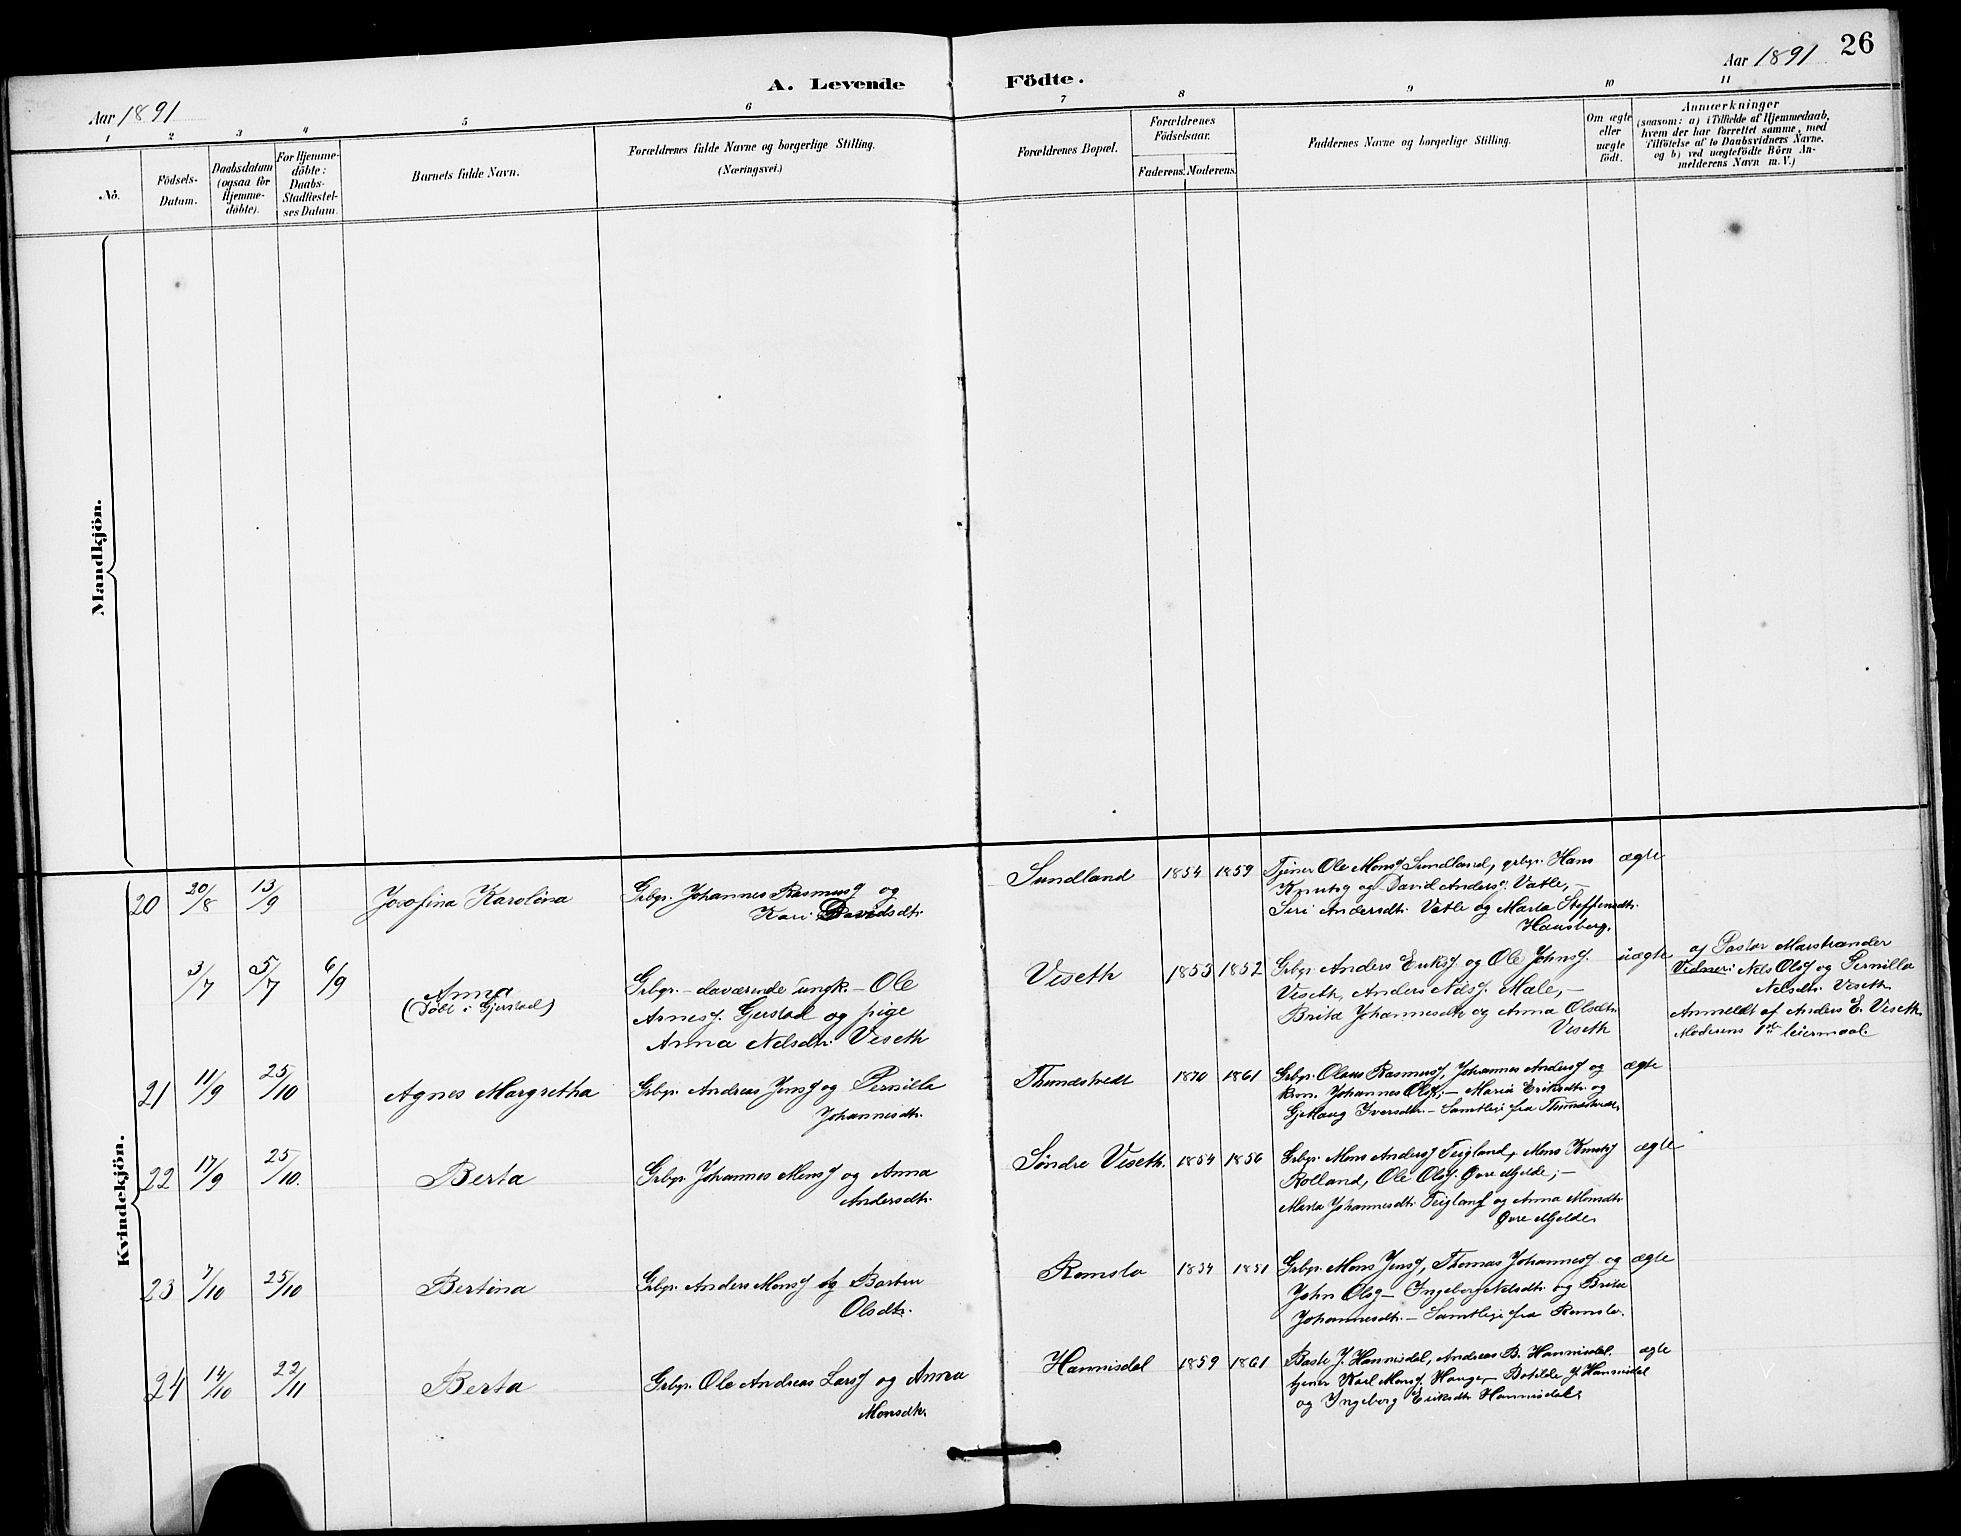 26
Aar 1891
A. Levende Födte.
Aar 1891
1 2 3 4 5 6 7 8 9 10 11
No.
Födsels-
Datum.
Daabsdatum
(ogsaa for
Hjemme-
döbte).
For Hjemme-
döbte:
Daabs-
Stadfæstel-
ses Datum.
Barnets fulde Navn.
Forældrenes fulde Navne og borgerlige Stilling.
(Næringsvei.)
Forældrenes Bopæl.
Forældrenes
Födselsaar.
Faderens. Moderens.
Faddernes Navne og borgerlige Stilling.
Om ægte
eller
uægte
födt.
Anmærkninger
(saasom: a) i Tilfælde af Hjemmedaab,
hvem der har forrettet samme, med
Tilföielse af to Daabsvidners Navne,
og b) ved uægtefödte Börn An-
melderens Navn m. V.)
Mandkjön.
Kvindekjön.
20 20/8 13/9 Josefina Karolina
Grbgr. Johannes Rasmusf og
Kari Davidsdtr.
Sundland 1854 1859
Tjener Ole Monsf Sundland, grbgr. Hans
Knutsf og David Andersf. Vatle, -
Siri Andersdtr. Vatle og Marta Steffensdtr.
Hausberg.
ægte
3/7 5/7 6/9 Anna
(Döbt i Gjerstad)
Grbgr. - daværende ungk. - Ole
Arnesf. Gjerstad og pige
Anna Nelsdtr. Veseth
Veseth 1853 1852
Grbgr. Anders Eriksf. og Ole Johnsf.
Veseth, Anders Nilsf. Male, -
Brita Johannesdtr og Anna Olsdtr.
Veseth
uægte
af Pastor Marstrander
Vidner: Nels Olsf og Pernilla
Nelsdtr. Veseth
Anmeldt af Anders E. Veseth
Moderens 1ste leiermaal.
21 11/9 25/10 Agnes Margretha
Grbgr. Andreas Jensf og Pernilla
Johannesdtr.
Thunestvedt 1870 1861
Grbgr. Olaus Rasmusf, Johannes Andersf og
kom. Johannes Olsf; - Maria Eriksdtr. og
Gjertaug Iversdtr. - Samtlige fra Thunestvedt,
ægte
22 17/9 25/10. Berta
Grbgr. Johannes Monsf og Anna
Andersdtr.
Söndre Veseth. 1854 1856
Grbgr. Mons Andersf Teigland, Mons Knutsf
Rolland, Ole Olsf. Övre Mjelde; -
Marta Johannesdtr. Teigland og Anna Monsdtr.
Övre Mjelde,
ægte
23 7/10 25/10 Bertina
Grbgr. Anders Monsf og Barbru
Olsdtr.
Romslo 1834 1851
Grbgr. Mons Jensf, Thomas Johannesf og
John Olsf - Ingeborg Nelsdtr. og Brita
Johannesdtr. - Samtlige fra Romslo.
ægte
24 14/10 22/11 Berta
Grbgr. Ole Andreas Larsf og Anna
Monsdtr.
Hannisdal 1859 1861
Baste J. Hannisdal, Andreas B. Hannisdal,
tjener Karl Monsf. Hauge, - Botilde J. Hannisdal
og Ingeborg Eriksdtr. Hannisdal.
ægte